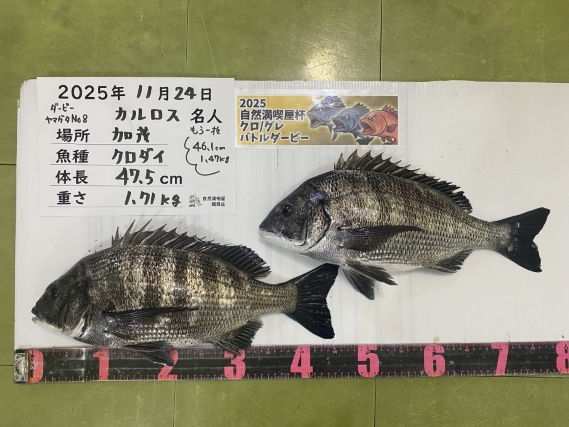 2025年 11月24日
ダービー
ヤマガタNo8
カルロス 名人
場所 加茂
もう一枚
46.1cm
1.47kg
魚種 クロダイ
体長 47.5cm
重さ 1.71kg
自然満喫屋
2025
自然満喫屋杯
クロ/グレ
バトルダービー
0 1 2 3 4 5 6 7 8